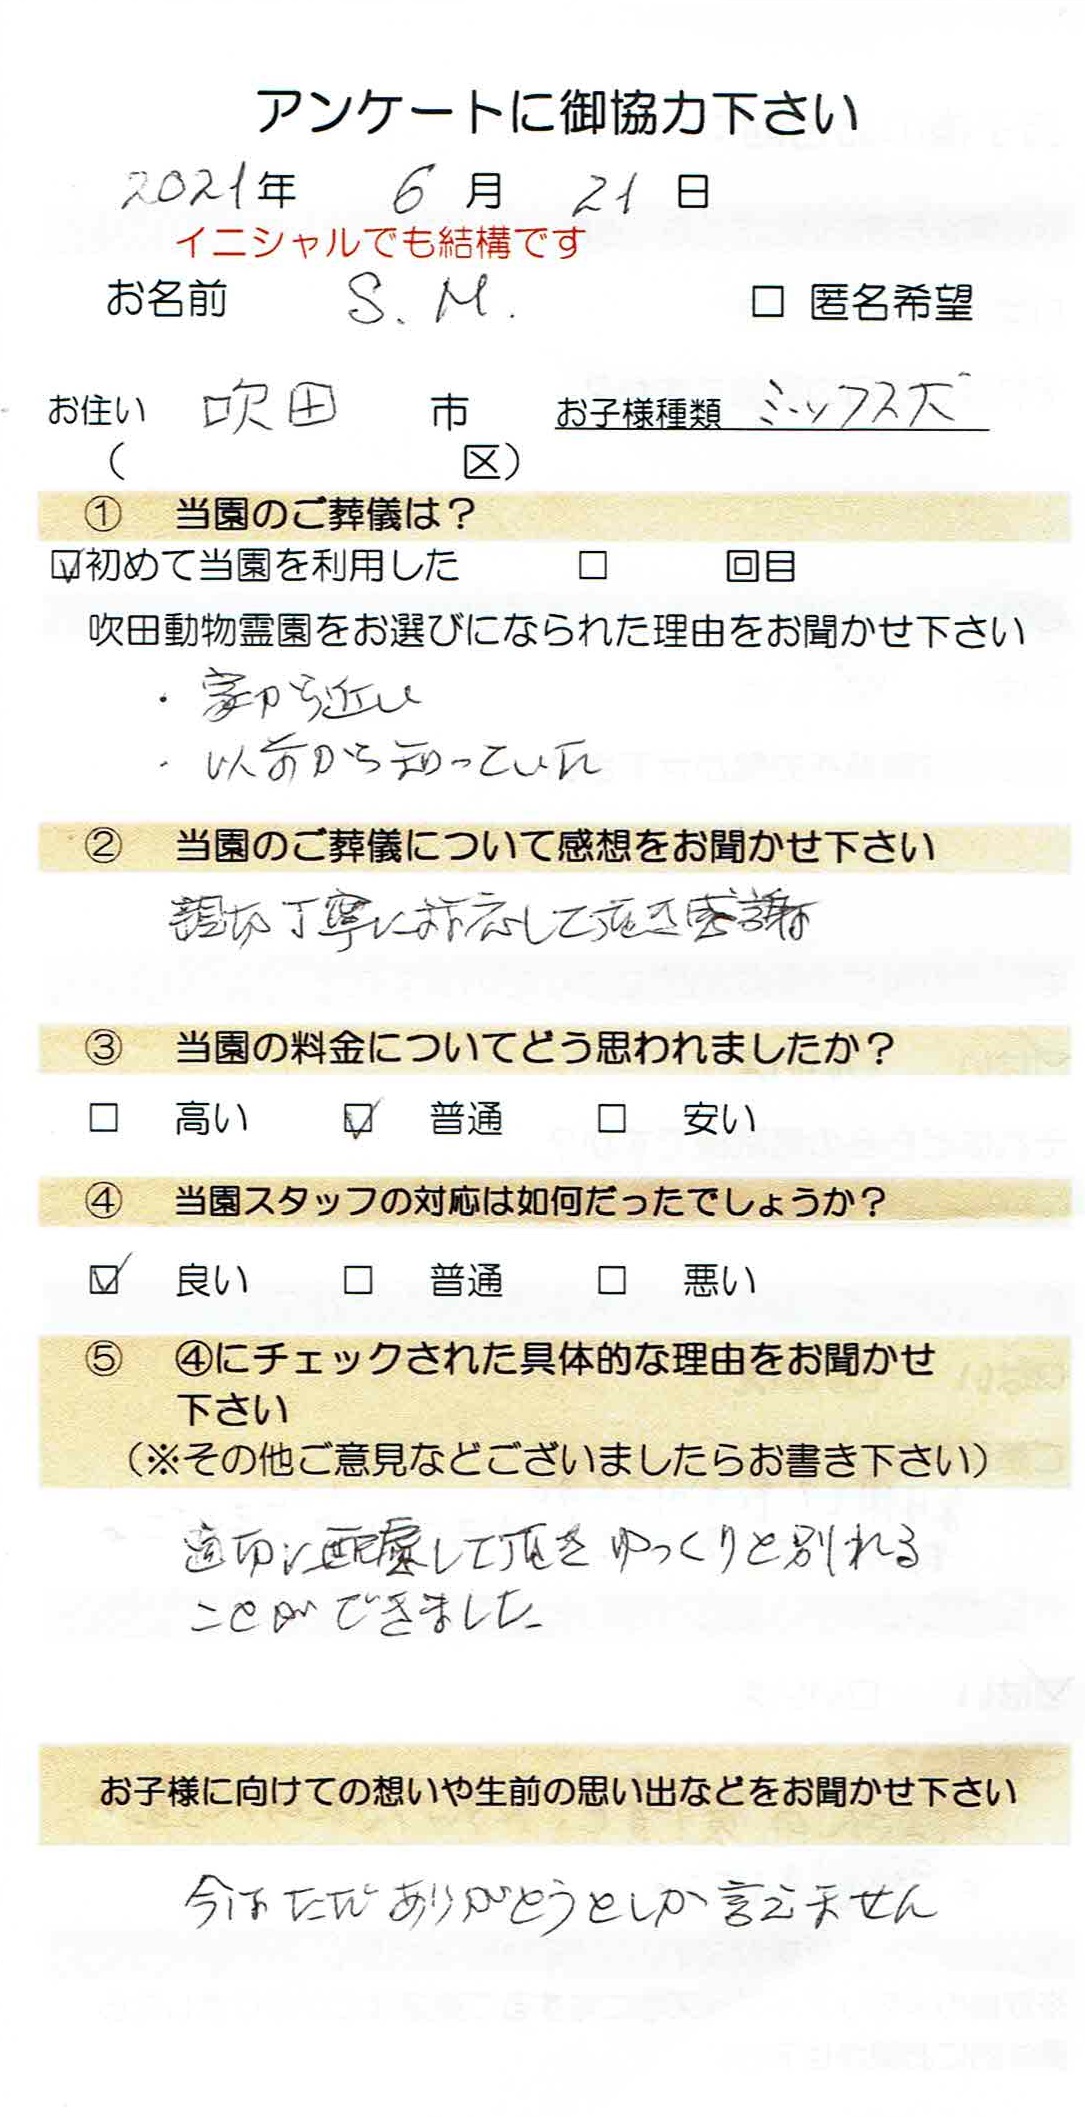 アンケートに御協力下さい
2021年 6月 21日
イニシャルでも結構です
お名前 S.M. □ 匿名希望
お住い 吹田 市 お子様種類 ミックス犬
( 区)
① 当園のご葬儀は？
☑初めて当園を利用した □ 回目
吹田動物霊園をお選びになられた理由をお聞かせ下さい
・家から近い
・以前から知っていた
② 当園のご葬儀について感想をお聞かせ下さい
親切丁寧に対応して頂き感謝
③ 当園の料金についてどう思われましたか？
□ 高い ☑ 普通 □ 安い
④ 当園スタッフの対応は如何だったでしょうか？
☑ 良い □ 普通 □ 悪い
⑤ ④にチェックされた具体的な理由をお聞かせ
下さい
（※その他ご意見などございましたらお書き下さい）
適切に配慮して頂きゆっくりと別れる
ことができました
お子様に向けての想いや生前の思い出などをお聞かせ下さい
今はただありがとうとしか言えません